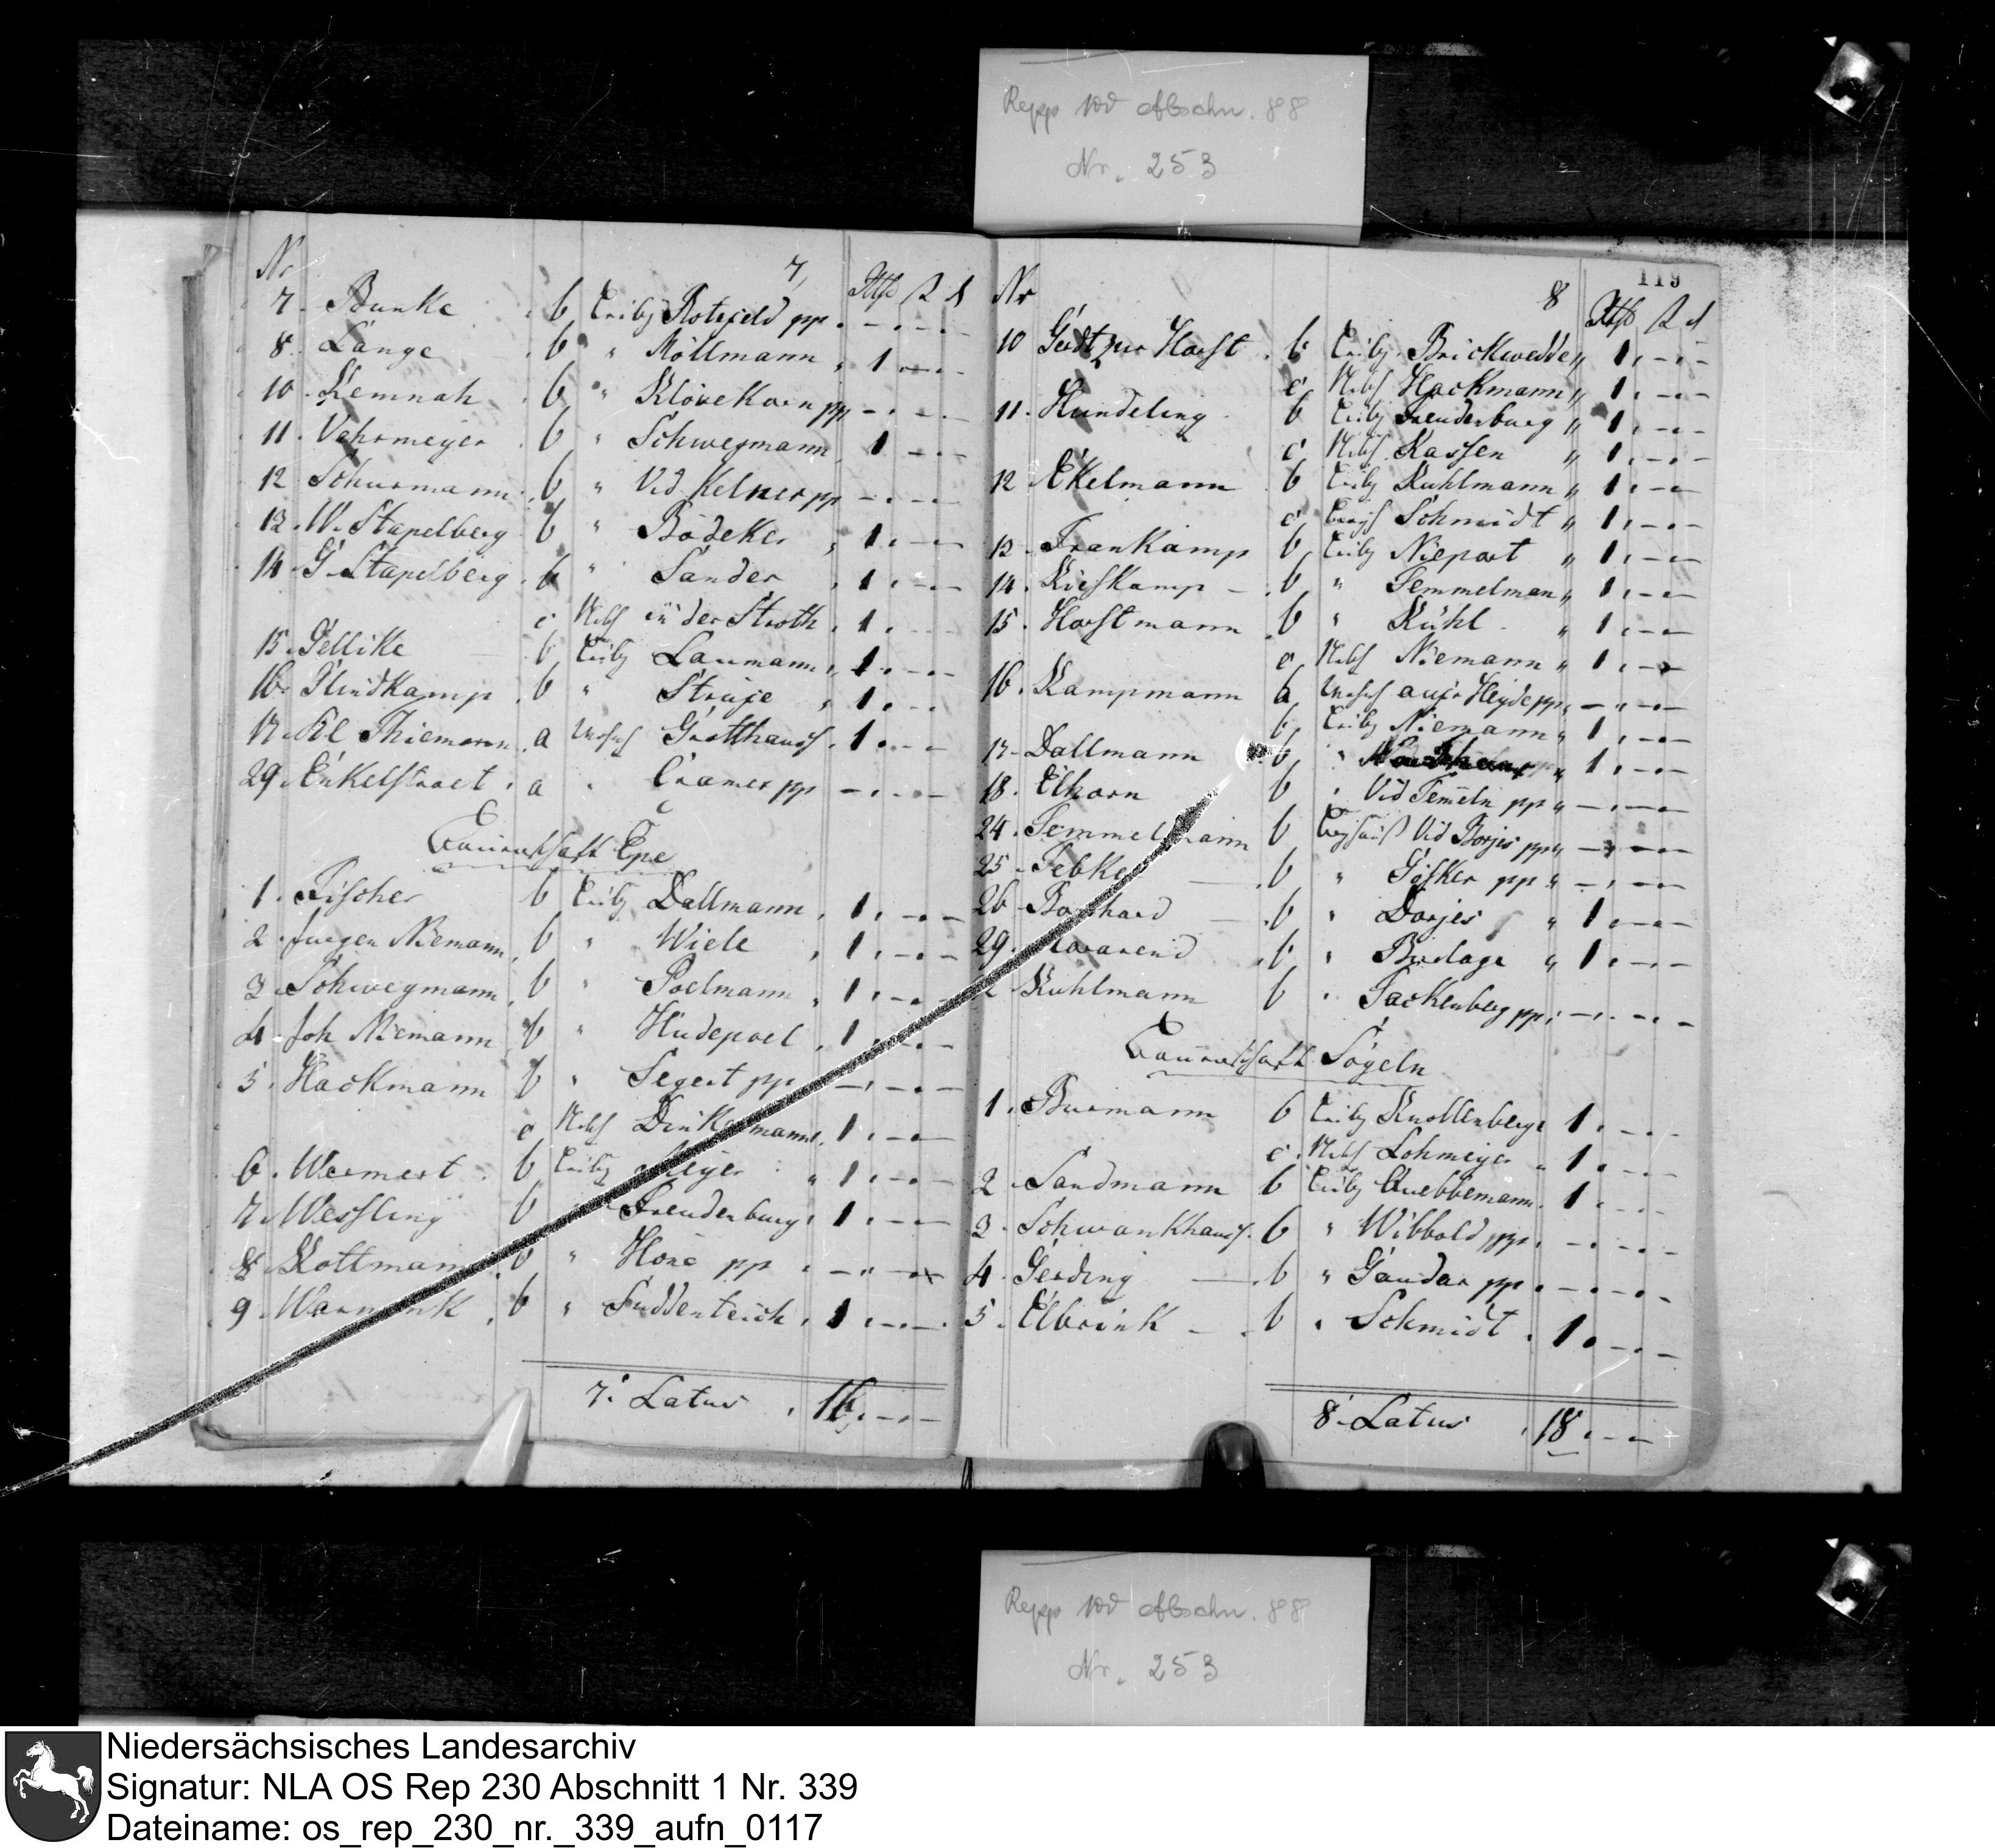 Repp 100 Abschn. 88
Nr. 253
Nr 7 Rthlr ß d
7. Bunke b Erbg Rotefeld pp. - . - . -
8 Lange b " Möllmann , 1 . - . -
10. Kemnah b " Klövekorn pp - . - . -
11. Vahrmeyer b " Schwegmann 1 . - . -
12 Schurmann b " Vid Kelner pp - . - . -
13. W. Stapelberg b " Bödeker , 1 . - . -
14. G. Stapelberg b " Sander , 1 . - . -
c in der Stroth , 1 . - . -
15. Gellike b Erbg Laumann , 1 . - . -
16. Plindkamp b " Struje , 1 . - . -
17. Kl Thiemann a Grotthaus 1 . - . -
29. Enkelstroet . a " Cramer pp - . - . -
Baurschaft Epe
1. Fischer b Erbg Dallmann , 1 . - . -
2. Jurgen Niemann b " Wiele , 1 . - . -
3. Schwegmann b " Poelmann , 1 . - . -
4. Joh Niemann b " Hudepoel , 1 . - . -
5. Hackmann b " Segert pp - . - . -
c 1 . - . -
6. Wermert b Erbg Meyer " 1 . - . -
7. Wessling b " Freudenburg , 1 . - . -
8. Kottmann b " Hone pp . - . - . -
9. Warmbrink , b " Suddenteich , 1 . - . -
7. Latus , 16 . - . -
119
Nr 8 Rthlr ß d
10 Gerdt zur Horst . b Erbg Brickwedde " 1 . - . -
c Hackmann " 1 . - . -
11. Hundeling b Erbg Freudenburg " 1 . - . -
c Kassen " 1 . - . -
12 Ekelmann b Erbg Kuhlmann " 1 . - . -
c Schmidt " 1 . - . -
13. Frankamp b Erbg Niepoet " 1 . - . -
14. Kieskamp - . b " Semmelman " 1 . - . -
15. Horstmann b " Kühl - " 1 . - . -
c Niemann " 1 . - . -
16. Kampmann a auf'r Heyde pp " - . - . -
b Erbg Niemann " 1 . - . -
17. Dallmann b " 1 . - . -
18. Elhorn b " Vid Temeln pp " - . - . -
24. Semmelmann b Vid Borjes pp " - . - . -
25. Febker b " Gösker pp " - . - . -
26 Borchard - . b " Dorjes " 1 . - . -
29. b " Budage " 1 . - . -
Kuhlmann b " Tackenberg pp , - . - . -
Baurschaft Sögeln
1. Burmann b Erbg Knollenberg 1 . - . -
c Lohmeyer " 1 . - . -
2 Sandmann b Erbg Quebbemann . 1 . - . -
3. Schwankhaus . b " Wibbold pp . - . - . -
4. Gerding - . b " Gander pp . - . - . -
5. Elbrink - . b " Schmidt . 1 . - . -
8. Latus , 18 . - . -
Repp 100 Abschn. 88
Nr. 253
Niedersächsisches Landesarchiv
Signatur: NLA OS Rep 230 Abschnitt 1 Nr. 339
Dateiname: os_rep_230_nr._339_aufn_0117